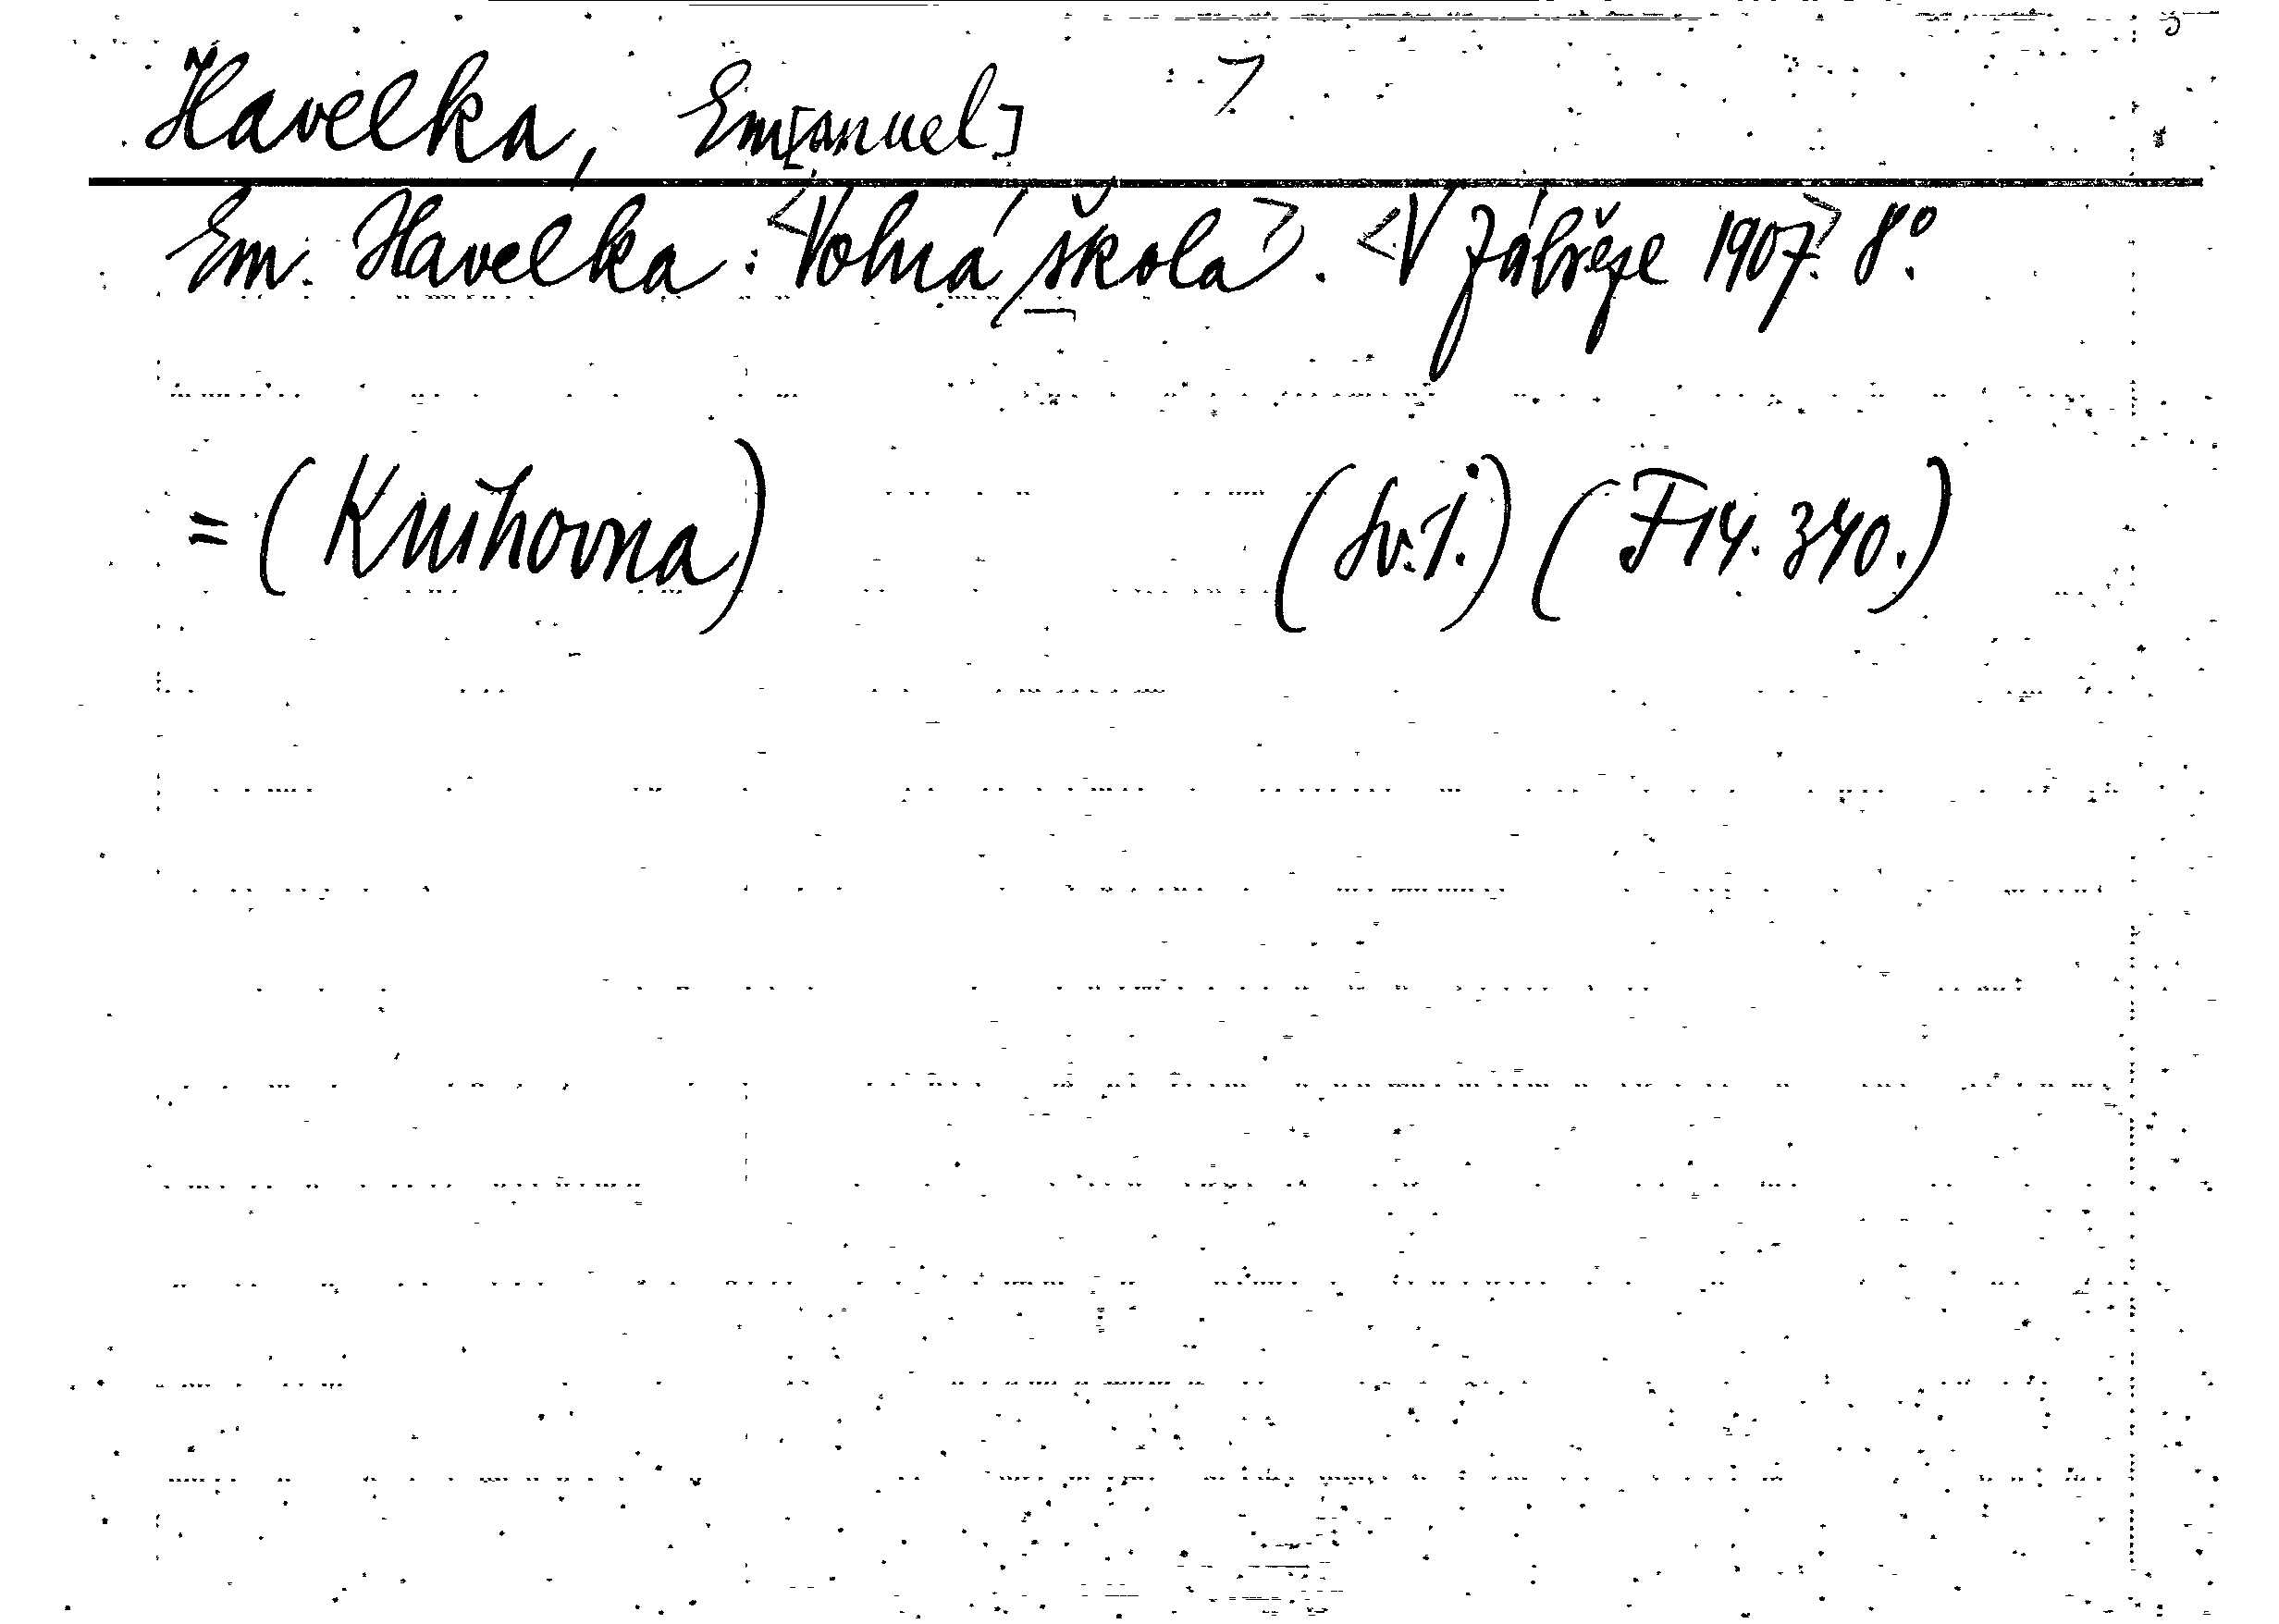 Havelka, Em[anuel] 7
Em. Havelka: <Volná škola>. <V Zábřeze 1907.> 8°.
= (Knihovna) (Sv. 1.) (F 14. 340.)